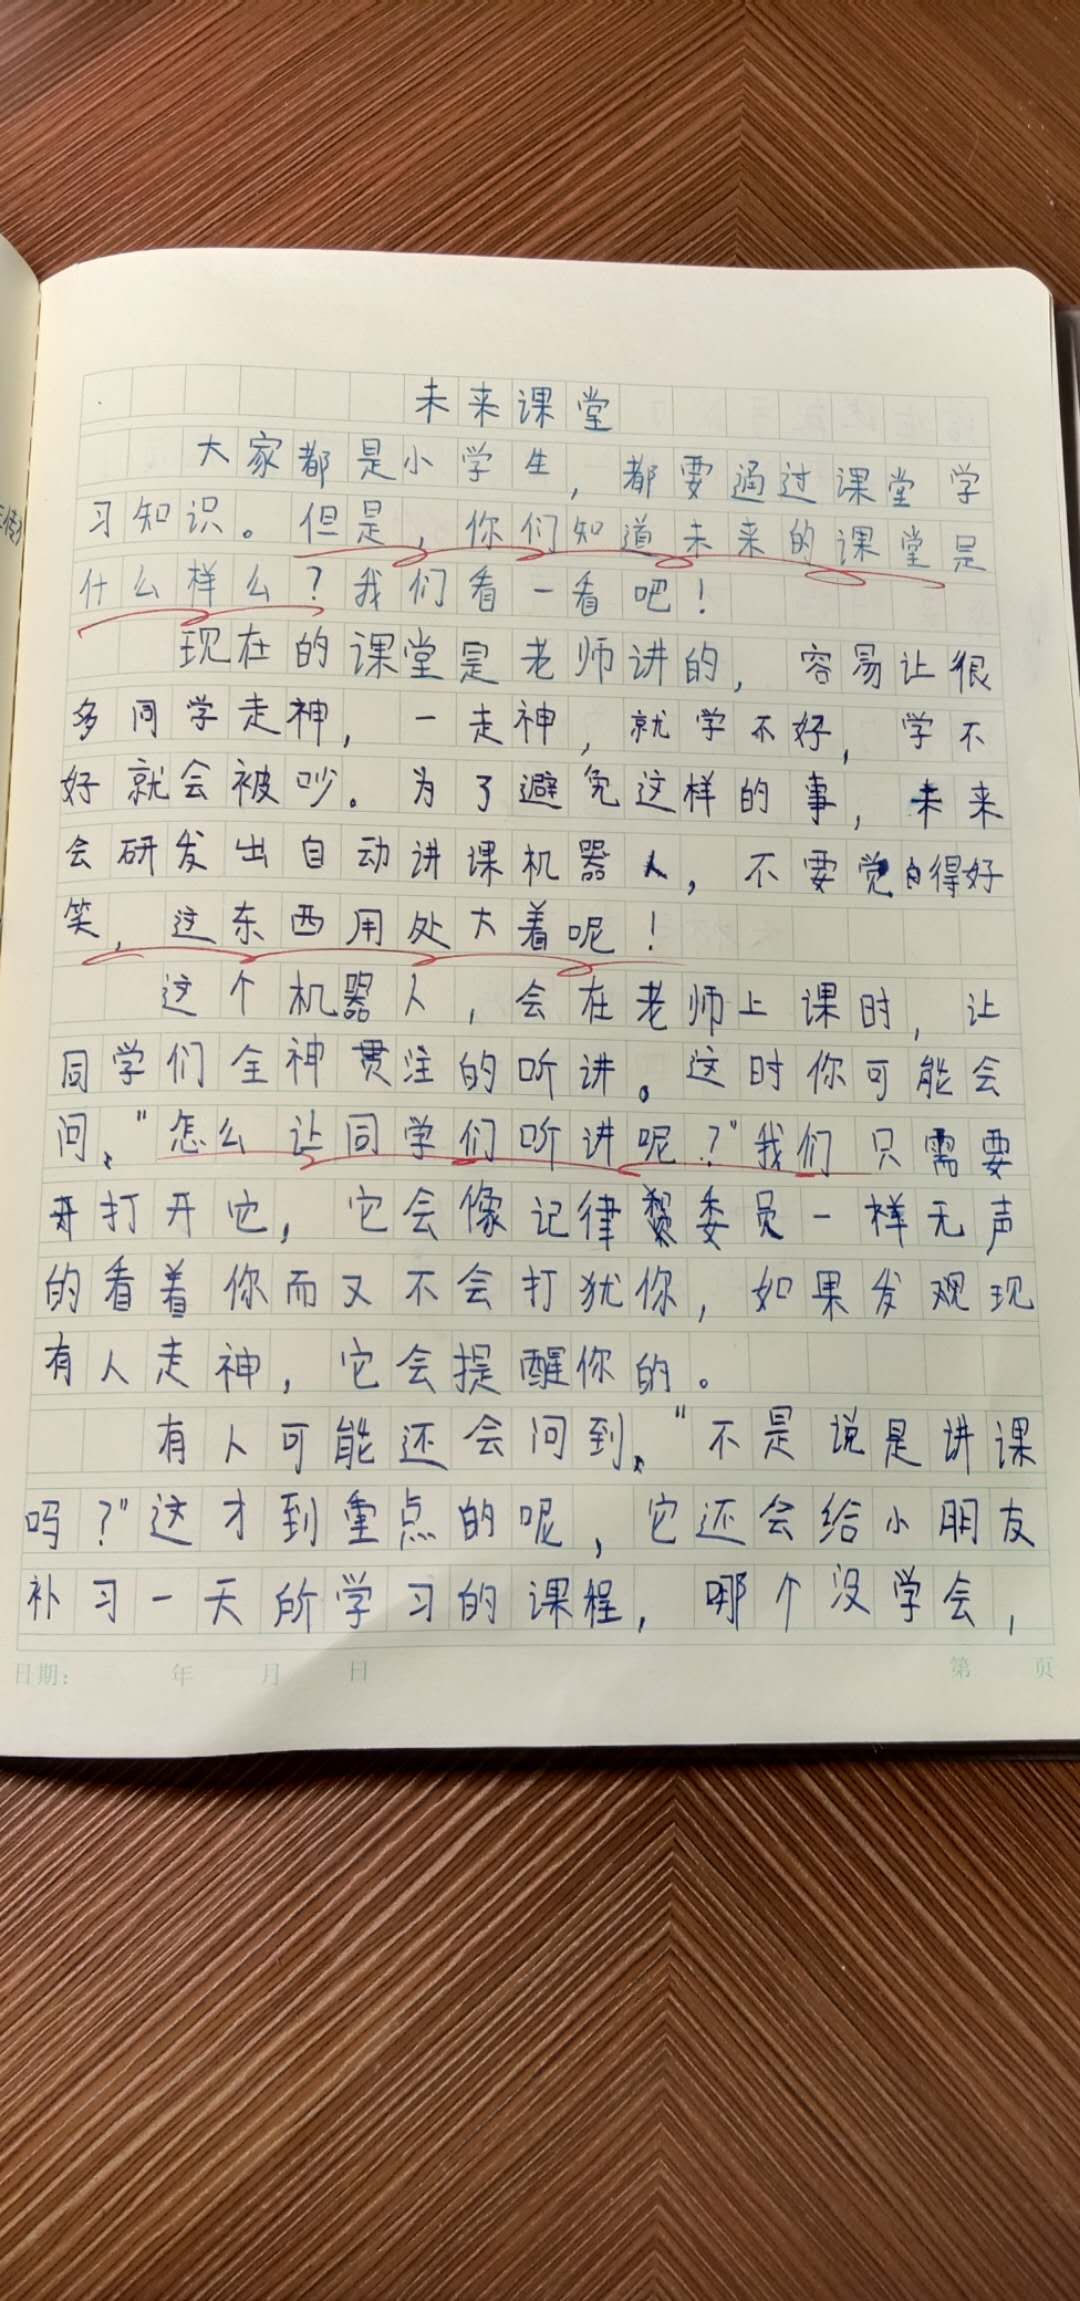 未来课堂
大家都是小学生，都要通过课堂学
习知识。但是，你们知道未来的课堂是
什么样么？我们看一看吧！
现在的课堂是老师讲的，容易让很
多同学走神，一走神，就学不好，学不
好就会被吵。为了避免这样的事，未来
会研发出自动讲课机器人，不要觉得好
笑，这东西用处大着呢！
这个机器人，会在老师上课时，让
同学们全神贯注的听讲。这时你可能会
问、“怎么让同学们听讲呢？”我们只需要
打开它，它会像记律委员一样无声
的看着你而又不会打犹你，如果发现
有人走神，它会提醒你的。
有人可能还会问到、“不是说是讲课
吗？”这才到重点的呢，它还会给小朋友
补习一天所学习的课程，哪个没学会，
日期： 年 月 日
第 页